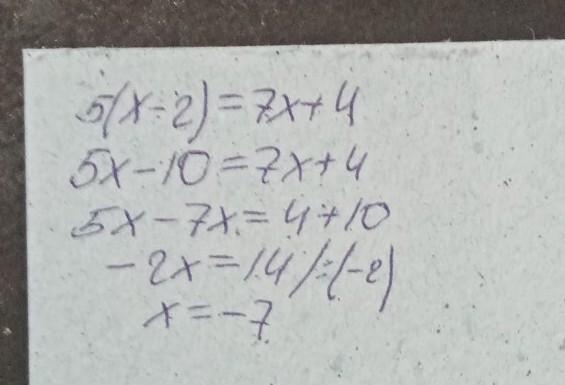 5(x-2)=7x+4
5x-10=7x+4
5x-7x=4+10
-2x=14/:(-2)
x=-7